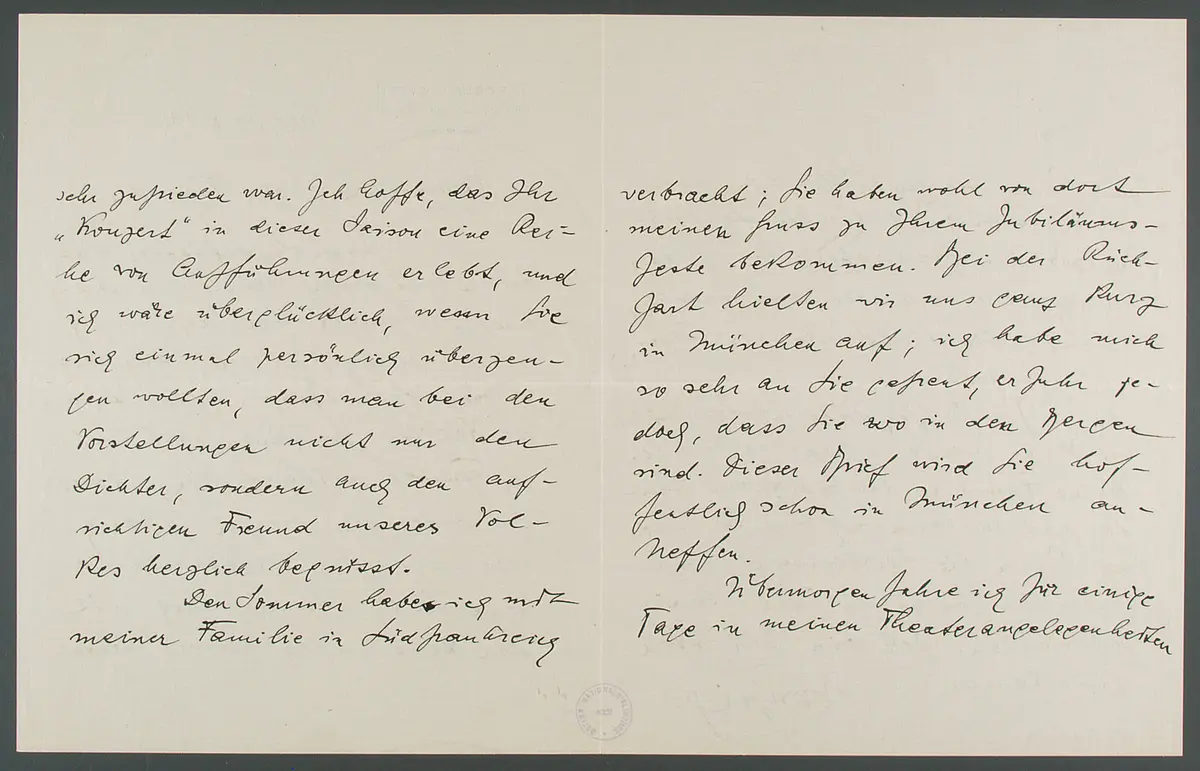 sehr zufrieden war. Ich hoffe, das Ihr
„Konzert" in dieser Saison eine Rei=
he von Aufführungen erlebt, und
ich wäre überglücklich, wenn Sie
sich einmal persönlich überzeu-
gen wollten, dass man bei den
Vorstellungen nicht nur den
Dichter, sondern auch den auf-
richtigen Freund unseres Vol-
kes herzlich begrüsst.
Den Sommer habe ich mit
meiner Familie in Südfrankreich
verbracht; Sie haben wohl von dort
meinen Gruss zu Ihrem Jubiläums-
feste bekommen. Bei der Rück-
fart hielten wir uns ganz kurz
in München auf; ich habe mich
so sehr an Sie gefreut, erfuhr je-
doch, dass Sie wo in den Bergen
sind. Dieser Brief wird Sie hof-
fentlich schon in München an-
treffen.
Übermorgen fahre ich für einige
Tage in meinen Theaterangelegenheiten